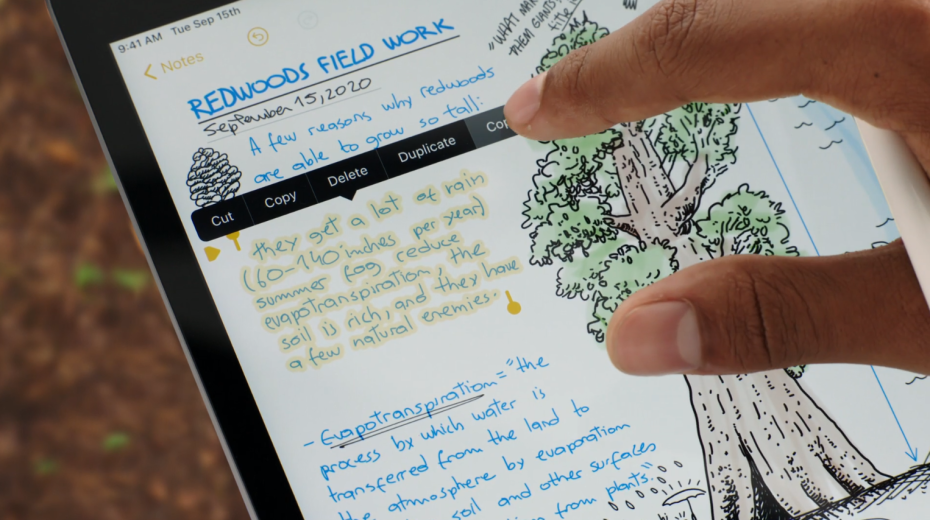 9:41 AM Tue Sep 15th
Notes
"WHAT
THEM
REDWOODS FIELD WORK
September 15, 2020
A few reasons why redwoods
are able to grow so tall:
Cut Copy Delete Duplicate
they get a lot of rain
(60-140 inches per year)
summer fog reduce
evapotranspiration, the
soil is rich, and they have
a few natural enemies.
- Evapotranspiration = "the
process by which water is
transferred from the land to
the atmosphere by evaporation
soil and other surfaces
from plants."